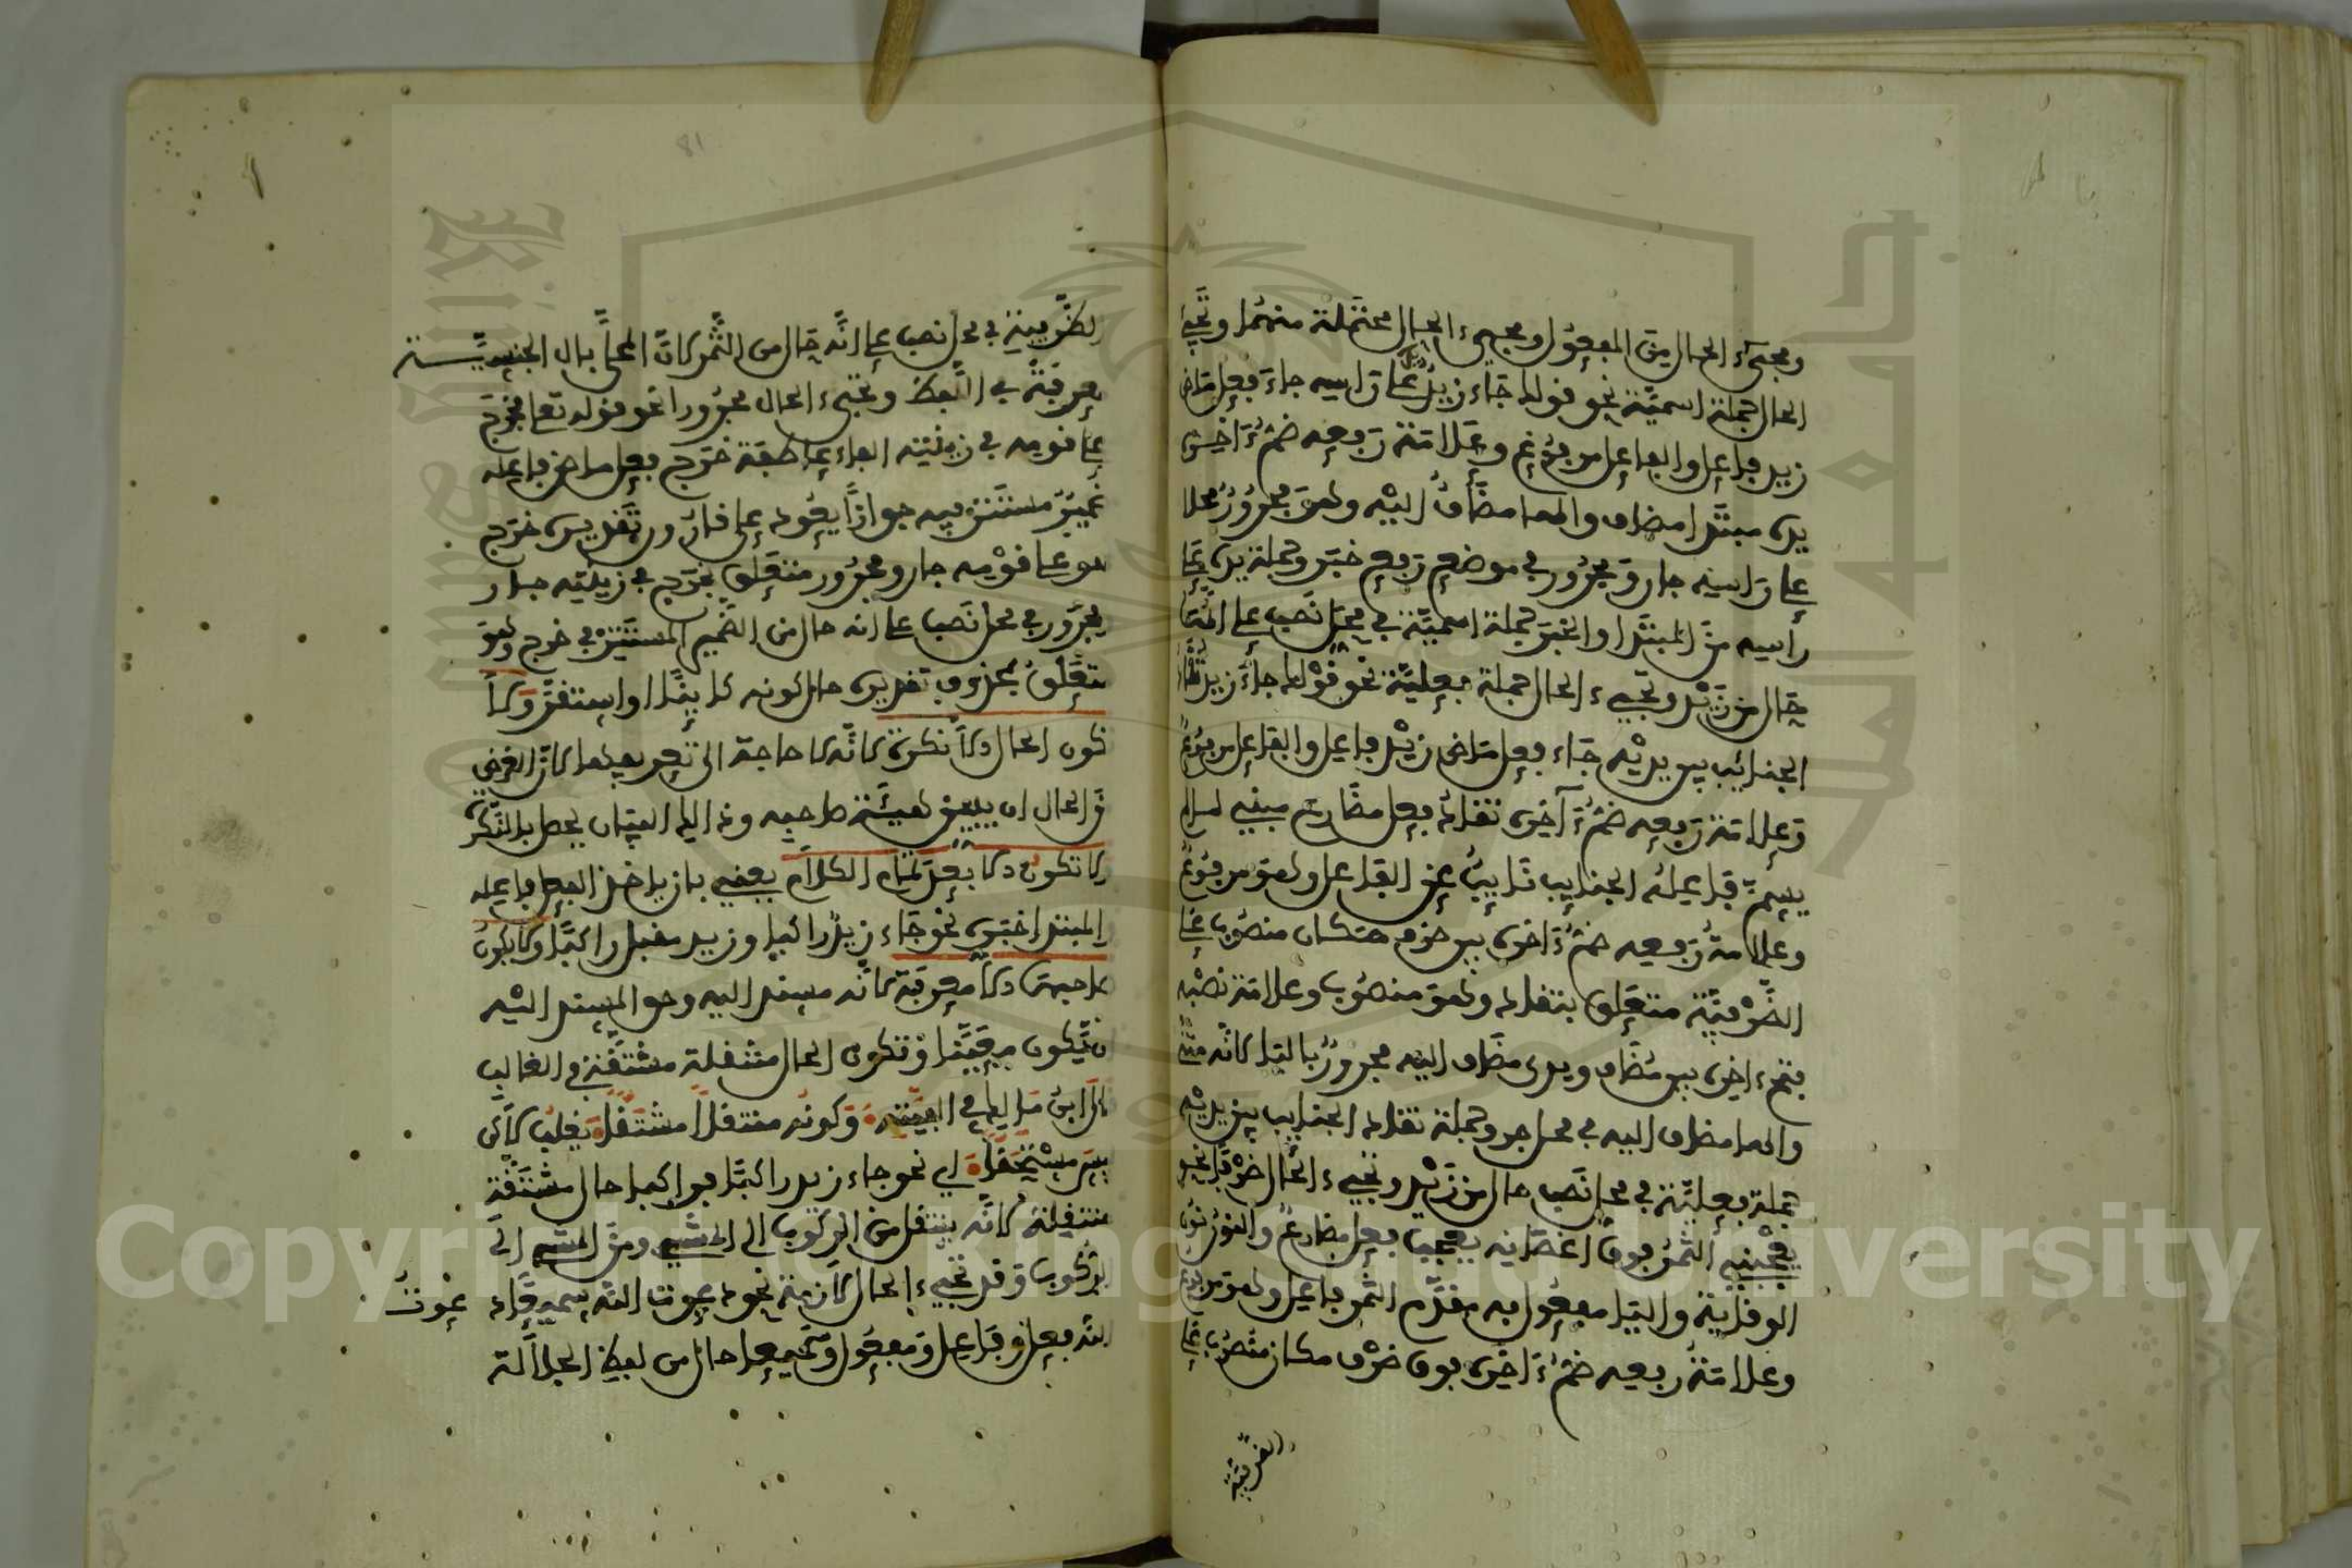 ومجيء الحال من المفعول ومجيء الحال محتملة منهما وتجيء
الحال جملة اسمية نحو قولك جاء زيد يده على راسه جاء فعل ماض
زيد فاعل والفاعل مرفوع وعلامة رفعه ضمة ءاخره
يده مبتدا مضاف والها مضاف اليه وهو مجرور محلا
على راسه جار ومجرور في موضع رفع خبر وجملة يده على
راسه من المبتدا والخبر جملة اسمية في محل نصب على انها
حال من زيد وتجيء الحال جملة فعلية نحو قولك جاء زيد تقاد
الجنائب بين يديه جاء فعل ماض زيد فاعل والفاعل مرفوع
وعلامة رفعه ضمة ءاخره تقاد فعل مضارع مبني لما لم
يسم فاعله الجنايب نايب عن الفاعل وهو مرفوع
وعلامة رفعه ضمة ءاخره بين ظرف مكان منصوب على
الظرفية متعلق بتقاد وهو منصوب وعلامة نصبه
فتح ءاخره بين مضاف ويدي مضاف اليه مجرور باليا لانه مثنى
والها مضاف اليه في محل جر وجملة تقاد الجنايب بين يديه
جملة فعلية في محل نصب حال من زيد وتجيء الحال ظرفا نحو
يعجبني الثمر فوق اغصانه يعجب فعل مضارع والنون نون
الوقاية واليا مفعول به مقدم الثمر فاعل وهو مرفوع
وعلامة رفعه ضمة ءاخره فوق ظرف مكان منصوب على
الظرفية
81
الظرفية في محل نصب على انه حال من الثمر لان المحلى بال الجنسية
معرفة في اللفظ وتجيء الحال مجرورا نحو قوله تعلى فخرج
على قومه في زينته الفاء عاطفة خرج فعل ماض فاعله
ضمير مستتر فيه جوازا يعود على قارون تقديره خرج
هو على قومه جار ومجرور متعلق بخرج في زينته جار
ومجرور في محل نصب على انه حال من الضمير المستتر في خرج وهو
متعلق بمحذوف تقديره حال كونه كاينا او استقر ولا
تكون الحال الا نكرة لانه لا حاجة الى تعريفها لان الغرض
من الحال ان يبين هيئة صاحبه وذالك البيان يحصل بالنكرة
ولا تكون الا بعد تمام الكلام يعني بان ياخذ الفعل فاعله
والمبتدا خبره نحو جاء زيد راكبا وزيد مقبل راكبا ولا يكون
صاحبها الا معرفة لانه مسند اليه وحق المسند اليه
ان يكون معرفة وتكون الحال منتقلة مشتقة في الغالب
قال ابن مالك في الفيته وكونه منتقلا مشتقا يغلب لاكن
ليس مستحقا اي نحو جاء زيد راكبا فراكبا حال مشتقة
منتقلة لانه ينتقل من الركوب الى المشي ومن المشي الى
الركوب وقد تجيء الحال لازمة نحو دعوت الله سميعا دعوت
الله فعل وفاعل ومفعول وسميعا حال من لفظ الجلالة